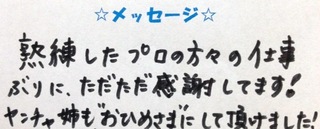 ☆メッセージ☆
熟練したプロの方々の仕事
ぶりに、ただただ感謝してます!
ヤンチャ姉も"おひめさま"にして頂けました!